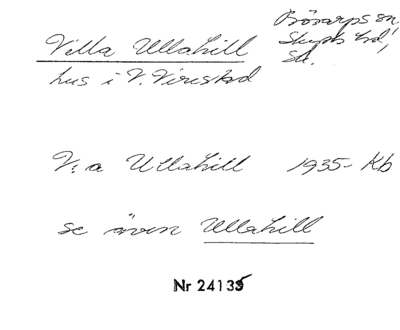 Villa Ullahill
Börarps sn.
Skytts hd,
Sk.
hus i V. Virestad
V:a Ullahill 1935- Kb
se även Ullahill
Nr 24135